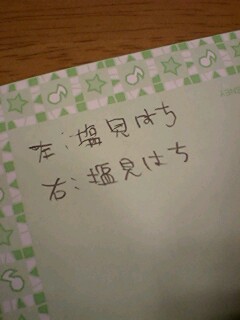 左：塩見はち
右：塩見はち